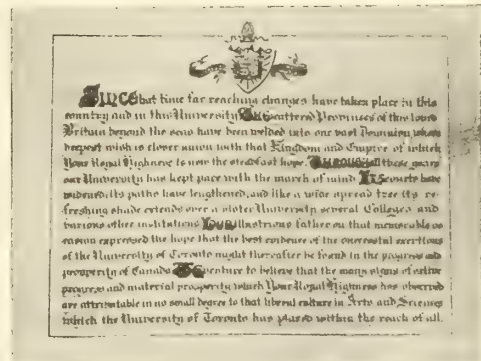 SINCE that time far reaching changes have taken place in this
country and in this University. The scattered Provinces of this loved
Britain beyond the seas have been welded into one vast Dominion whose
deepest wish is closer union with that Kingdom and Empire of which
Your Royal Highness is now the steadfast hope. THROUGH all these years
our University has kept pace with the march of mind. ITS courts have
widened, its paths have lengthened, and like a wide spread tree its re-
freshing shade extends over a sister University several Colleges and
various other institutions. YOUR illustrious father on that memorable oc-
casion expressed the hope that the best evidence of the successful exertions
of the University of Toronto might thereafter be found in the progress and
prosperity of Canada. WE venture to believe that the many signs of active
progress and material prosperity which Your Royal Highness has observed
are attributable in no small degree to that liberal culture in Arts and Sciences
which the University of Toronto has placed within the reach of all.